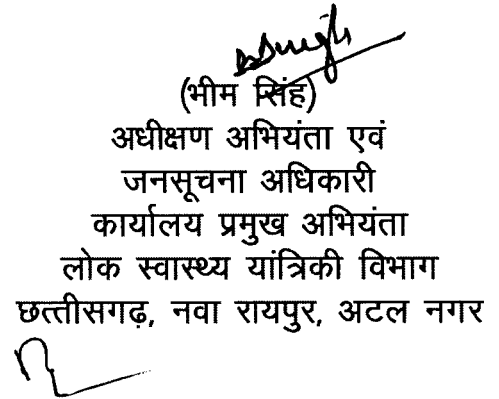 (भीम सिंह)
अधीक्षण अभियंता एवं
जनसूचना अधिकारी
कार्यालय प्रमुख अभियंता
लोक स्वास्थ्य यांत्रिकी विभाग
छत्तीसगढ़, नवा रायपुर, अटल नगर